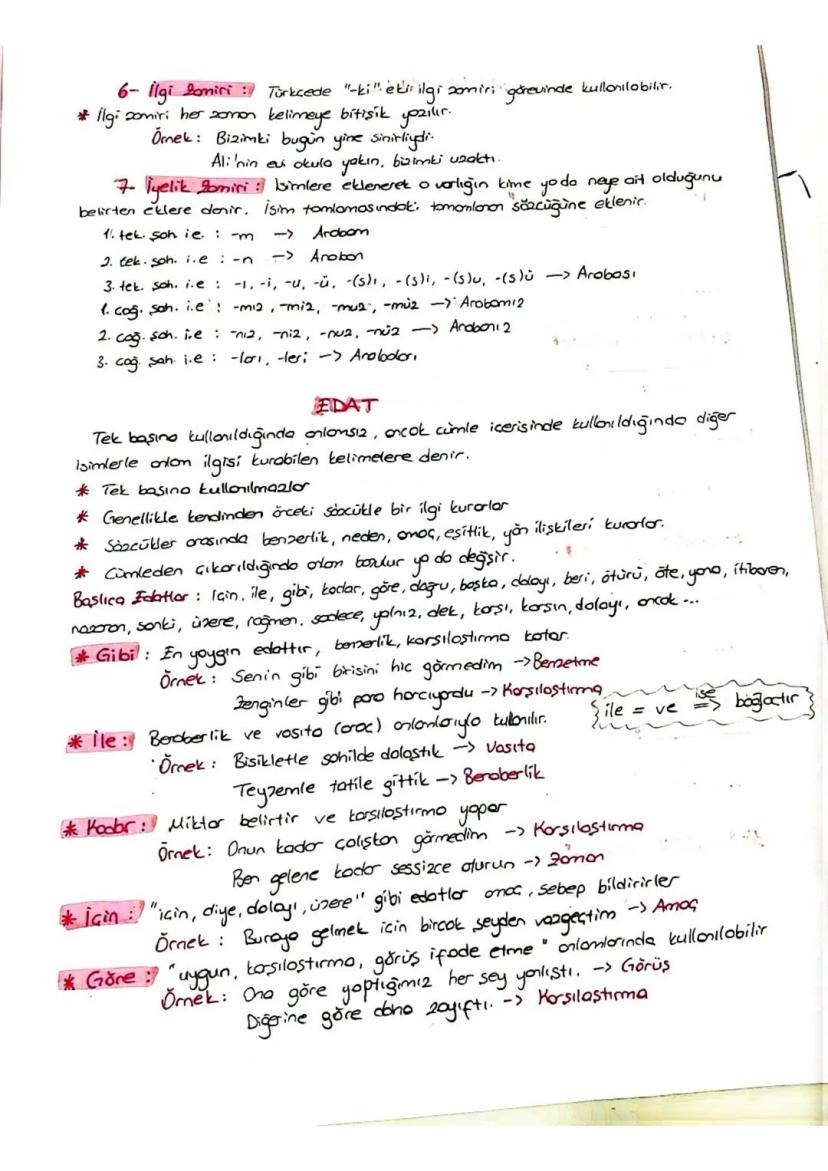 6- İlgi Zamiri : Türkcede "-ki" eki ilgi zamiri görevinde kullanılabilir.
* İlgi zamiri her zaman kelimeye bitişik yazılır.
Örnek : Bizimki bugün yine sinirliydi.
Ali'nin evi okula yakın, bizimki uzaktı.
7- İyelik Zamiri : İsimlere eklenerek o varlığın kime ya da neye ait olduğunu
belirten eklere denir. İsim tamlamasındaki tamamlanan sözcüğüne eklenir.
1. tek. şah i.e. : -m -> Arabam
2. tek. şah. i.e : -n -> Araban
3. tek. şah. i.e : -ı, -i, -u, -ü, -(s)ı, -(s)i, -(s)u, -(s)ü -> Arabası
1. çoğ. şah. i.e : -mız, -miz, -muz, -müz -> Arabamız
2. çoğ. şah. i.e : -nız, -niz, -nuz, -nüz -> Arabanız
3. çoğ. şah. i.e : -ları, -leri -> Arabaları
EDAT
Tek başına kullanıldığında anlamsız, ancak cümle içerisinde kullanıldığında diğer
isimlerle anlam ilgisi kurabilen kelimelere denir.
* Tek başına kullanılmazlar
* Genellikle kendinden önceki sözcükle bir ilgi kurarlar
* Sözcükler arasında benzerlik, neden, amaç, eşitlik, yön ilişkileri kurarlar.
* Cümleden çıkarıldığında anlam bozulur ya da değişir.
Başlıca Edatlar : İçin, ile, gibi, kadar, göre, doğru, başka, dolayı, beri, ötürü, öte, yana, itibaren,
nazaran, sanki, üzere, rağmen, sadece, yalnız, dek, karşı, karşın, dolayı, ancak ...
* Gibi : En yaygın edattır, benzerlik, karşılaştırma katar.
Örnek : Senin gibi birisini hiç görmedim -> Benzetme
Zenginler gibi para harcıyordu -> Karşılaştırma
ile = ve ise => bağlaçtır
* İle : Beraberlik ve vasıta (araç) anlamlarıyla kullanılır.
Örnek : Bisikletle sahilde dolaştık -> Vasıta
Teyzemle tatile gittik -> Beraberlik
* Kadar : Miktar belirtir ve karşılaştırma yapar
Örnek : Onun kadar çalışkan görmedim -> Karşılaştırma
Ben gelene kadar sessizce oturun -> Zaman
* İçin : "için, diye, dolayı, üzere" gibi edatlar amaç, sebep bildirirler
Örnek : Buraya gelmek için bircok şeyden vazgeçtim -> Amaç
* Göre : "uygun, karşılaştırma, görüş ifade etme" anlamlarında kullanılabilir
Örnek : Ona göre yaptığımız her şey yanlıştı. -> Görüş
Diğerine göre daha zayıftı. -> Karşılaştırma